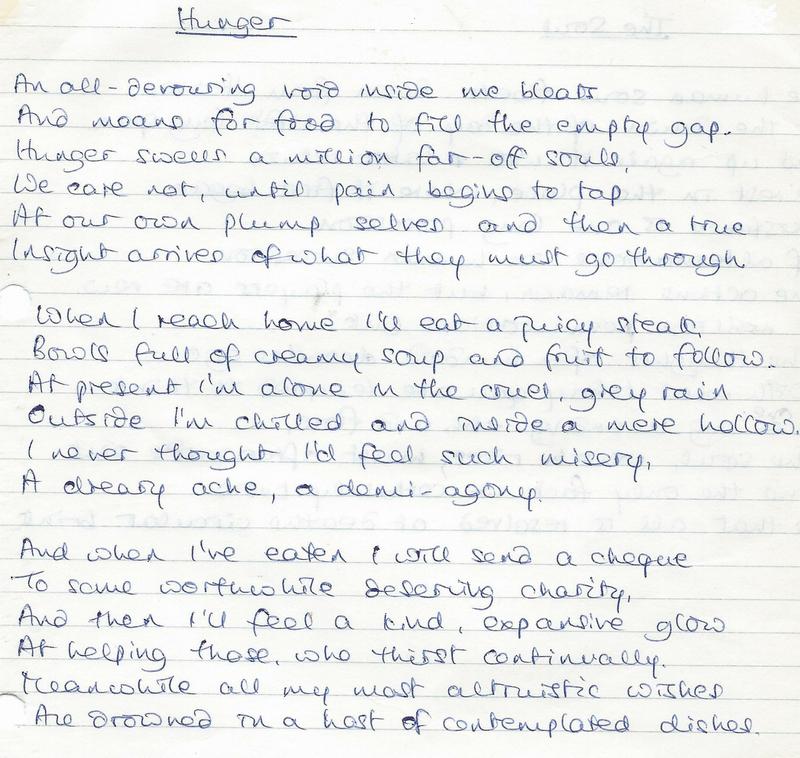 Hunger
An all-devouring void inside me bleats
And moans for food to fill the empty gap.
Hunger swells a million far-off souls,
We care not, until pain begins to tap
At our own plump selves and then a true
Insight arrives of what they must go through
When I reach home I'll eat a juicy steak,
Bowls full of creamy soup and fruit to follow.
At present I'm alone in the cruel, grey rain
Outside I'm chilled and inside a mere hollow.
I never thought I'd feel such misery,
A dreary ache, a demi-agony.
And when I've eaten I will send a cheque
To some worthwhile deserving charity,
And then I'll feel a kind, expansive glow
At helping those, who thirst continually.
Meanwhile all my most altruistic wishes
Are drowned in a host of contemplated dishes.